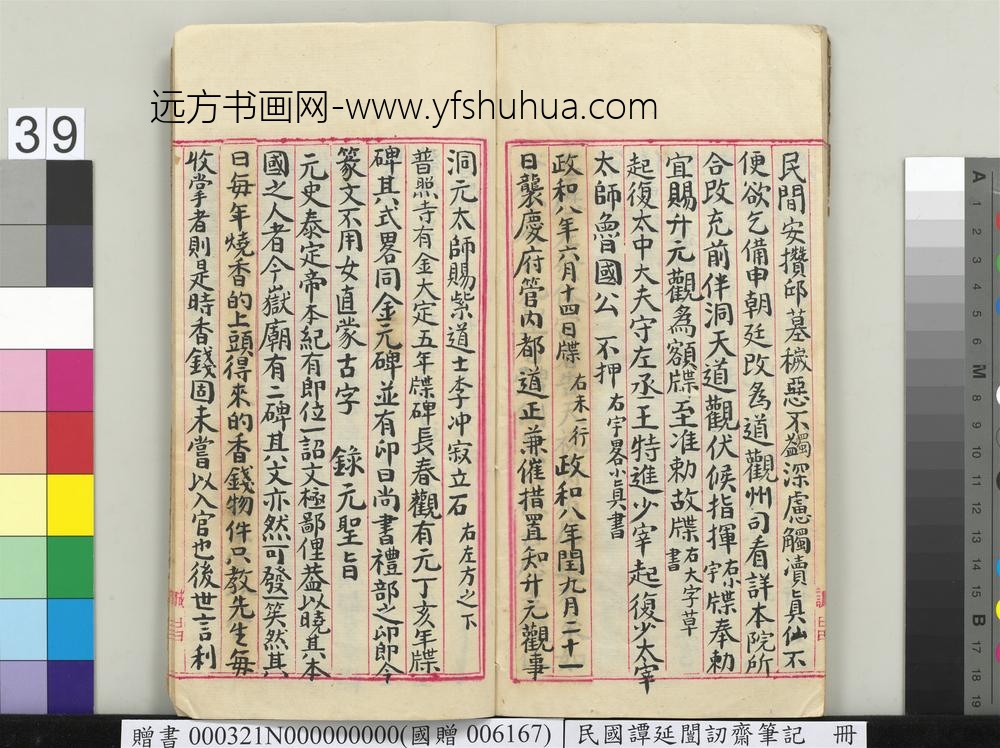 远方书画网-www.yfshuhua.com
39
民間安攢邱墓穢惡不蠲深慮觸瀆真仙不
便欲乞備申朝廷改為道觀州司看詳本院所
合改充前件洞天道觀伏候指揮右小字牒奉勅
宜賜升元觀為額牒至准勅故牒右大字草書
起復太中大夫守左丞王特進少宰起復少太宰
太師魯國公 不押 右字畧小真書
政和八年六月十四日牒 右末一行 政和八年閏九月二十一
日襲慶府管內都道正兼催措置知升元觀事
洞元太師賜紫道士李冲寂立石 右左方之下
普照寺有金大定五年牒碑長春觀有元丁亥年牒
碑其式畧同金元碑並有印曰尚書禮部之印即今
篆文不用女直蒙古字 錄元聖旨
元史泰定帝本紀有即位一詔文極鄙俚葢以曉其本
國之人者今嶽廟有二碑其文亦然可發一笑然其
曰每年燒香的上頭得來的香錢物件只教先生每
收掌者則是時香錢固未嘗以入官也後世言利
A 1 2 3 4 5 6 M 8 9 10 11 12 13 14 15 B 17 18 19
贈書 000321N000000000(國贈 006167) 民國譚延闓訒齋筆記 冊